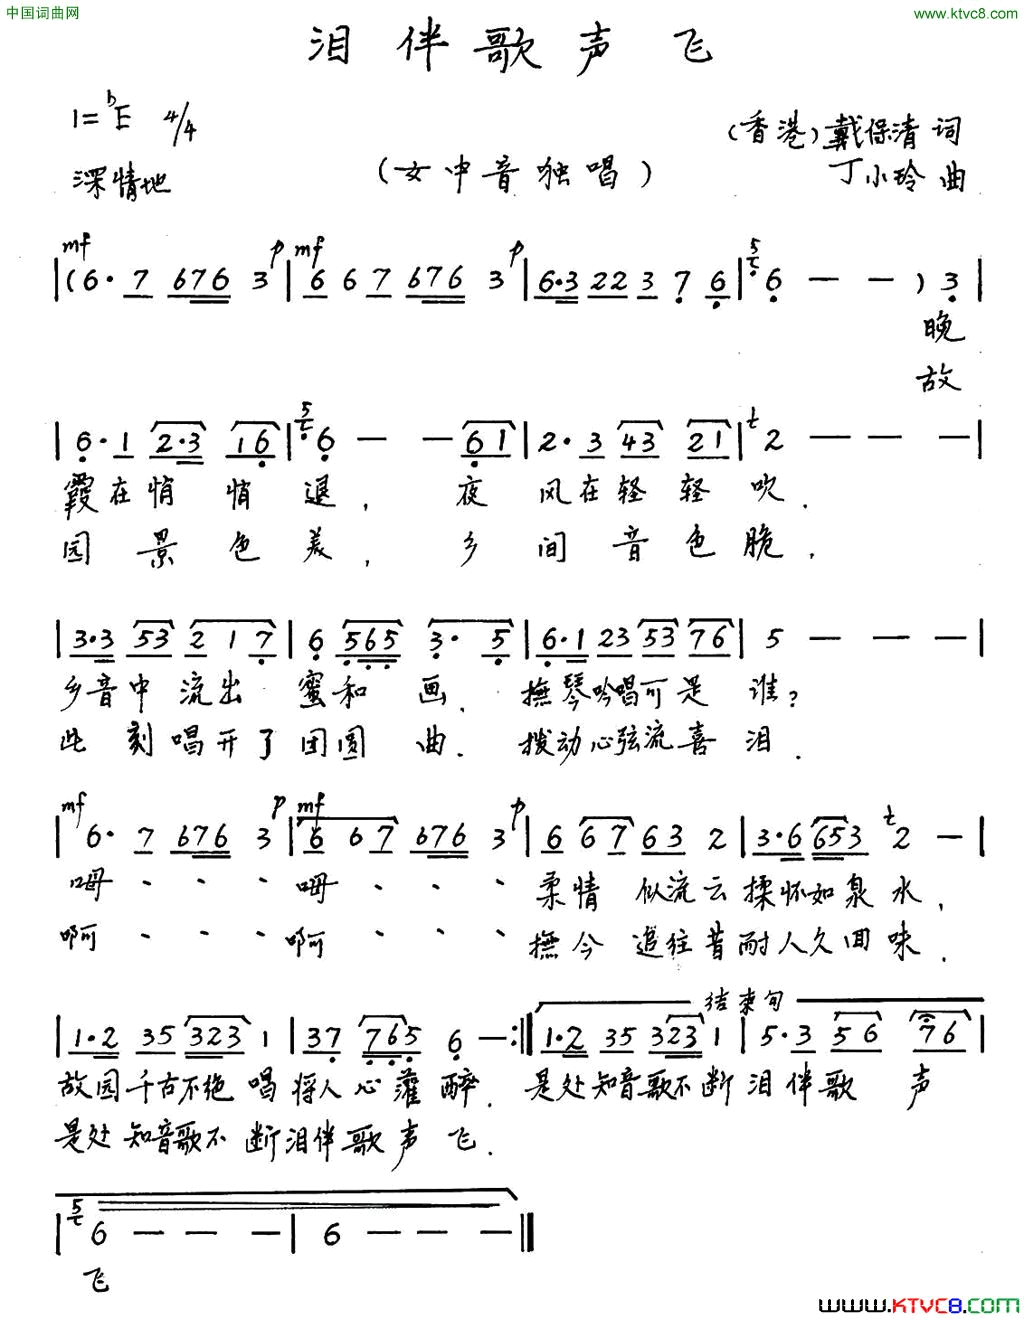 中国词曲网
www.ktvc8.com
泪伴歌声飞
1=ᵇE 4/4
(香港)戴保清词
深情地
(女中音独唱)
丁小玲曲
mf p mf p 5
|(6·7 676 3|6 6 7 676 3|6·3 223 7 6|6 — — )3|
晚
故
5 t
|6·1 2·3 16|6 — — 61|2·3 43 21|2 — — —|
霞在悄悄退, 夜风在轻轻吹.
园景色美, 乡间音色脆,
|3·3 53 2 1 7|6 565 3· 5|6·1 23 53 76|5 — — —|
乡音中流出蜜和画, 撫琴吟唱可是谁?
此刻唱开了团圆曲. 拨动心弦流喜泪.
mf p mf p t
|6·7 676 3|6 6 7 676 3|6 67 63 2|3·6 653 2 —|
呣、、、呣、、、柔情似流云揉怀如泉水,
啊、、、啊、、、撫今追往昔耐人久回味.
结束句
|1·2 35 323 1|37 765 6 —:||1·2 35 323 1|5·3 56 76|
故园千古不绝唱将人心灌醉. 是处知音歌不断泪伴歌声
是处知音歌不断泪伴歌声飞.
5
|6 — — —|6 — — —||
飞
www.KTVC8.com